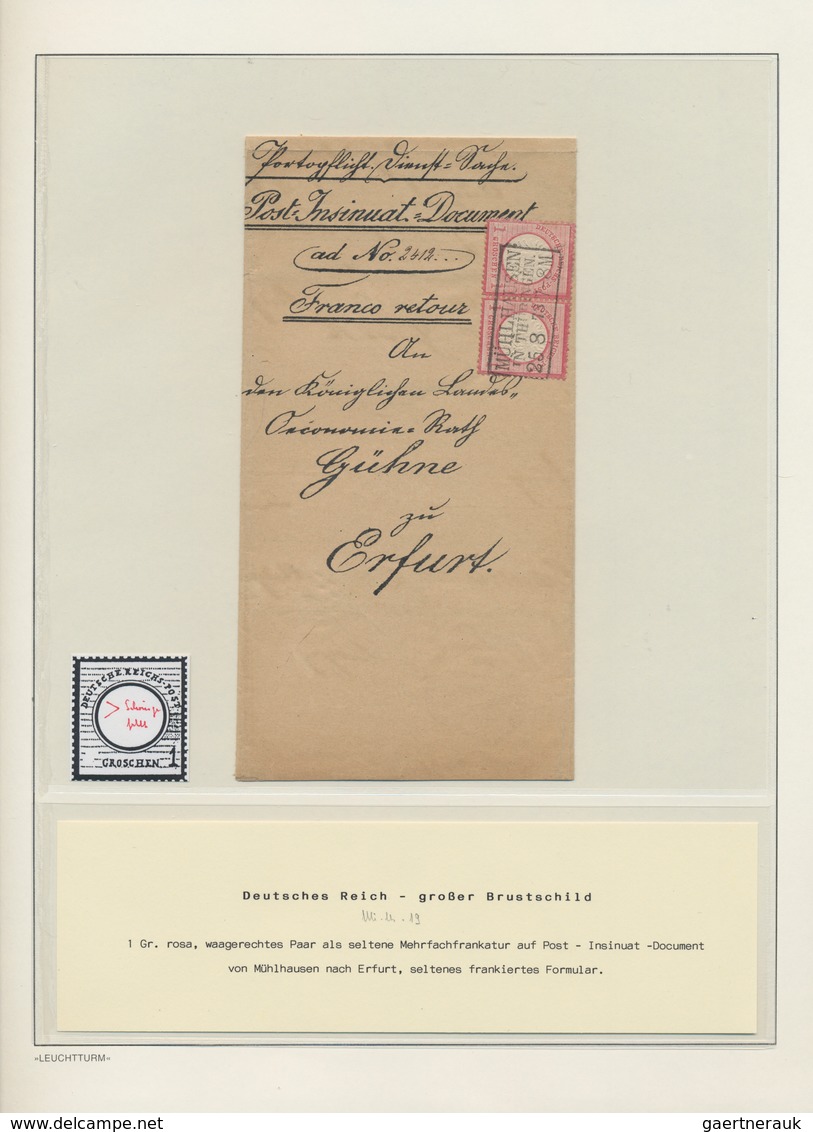 Portopflicht. Dienst-Sache.
Post-Insinuat.-Document
ad No. 2412...
Franco retour
An
den Königlichen Landes-
Oeconomie-Rath
Gühne
zu
Erfurt.
DEUTSCHE
1 GROSCHEN 1
MÜHLHAUSEN
IN THÜRINGEN.
25 8
DEUTSCHE REICHS-POST
> Schwinge
fehlt
GROSCHEN 1
Deutsches Reich - großer Brustschild
Mi.-Nr. 19
1 Gr. rosa, waagerechtes Paar als seltene Mehrfachfrankatur auf Post - Insinuat -Document
von Mühlhausen nach Erfurt, seltenes frankiertes Formular.
»LEUCHTTURM«
gaertnerauk